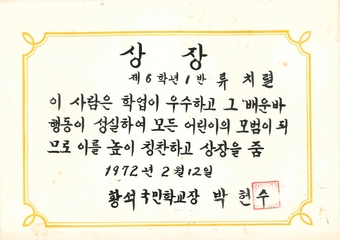 상장
제6학년1반 류치렬
이 사람은 학업이 우수하고 그 배운바
행동이 성실하여 모든 어린이의 모범이 되
므로 이를 높이 칭찬하고 상장을 줌
1972년 2월12일
황석국민학교장 박현수